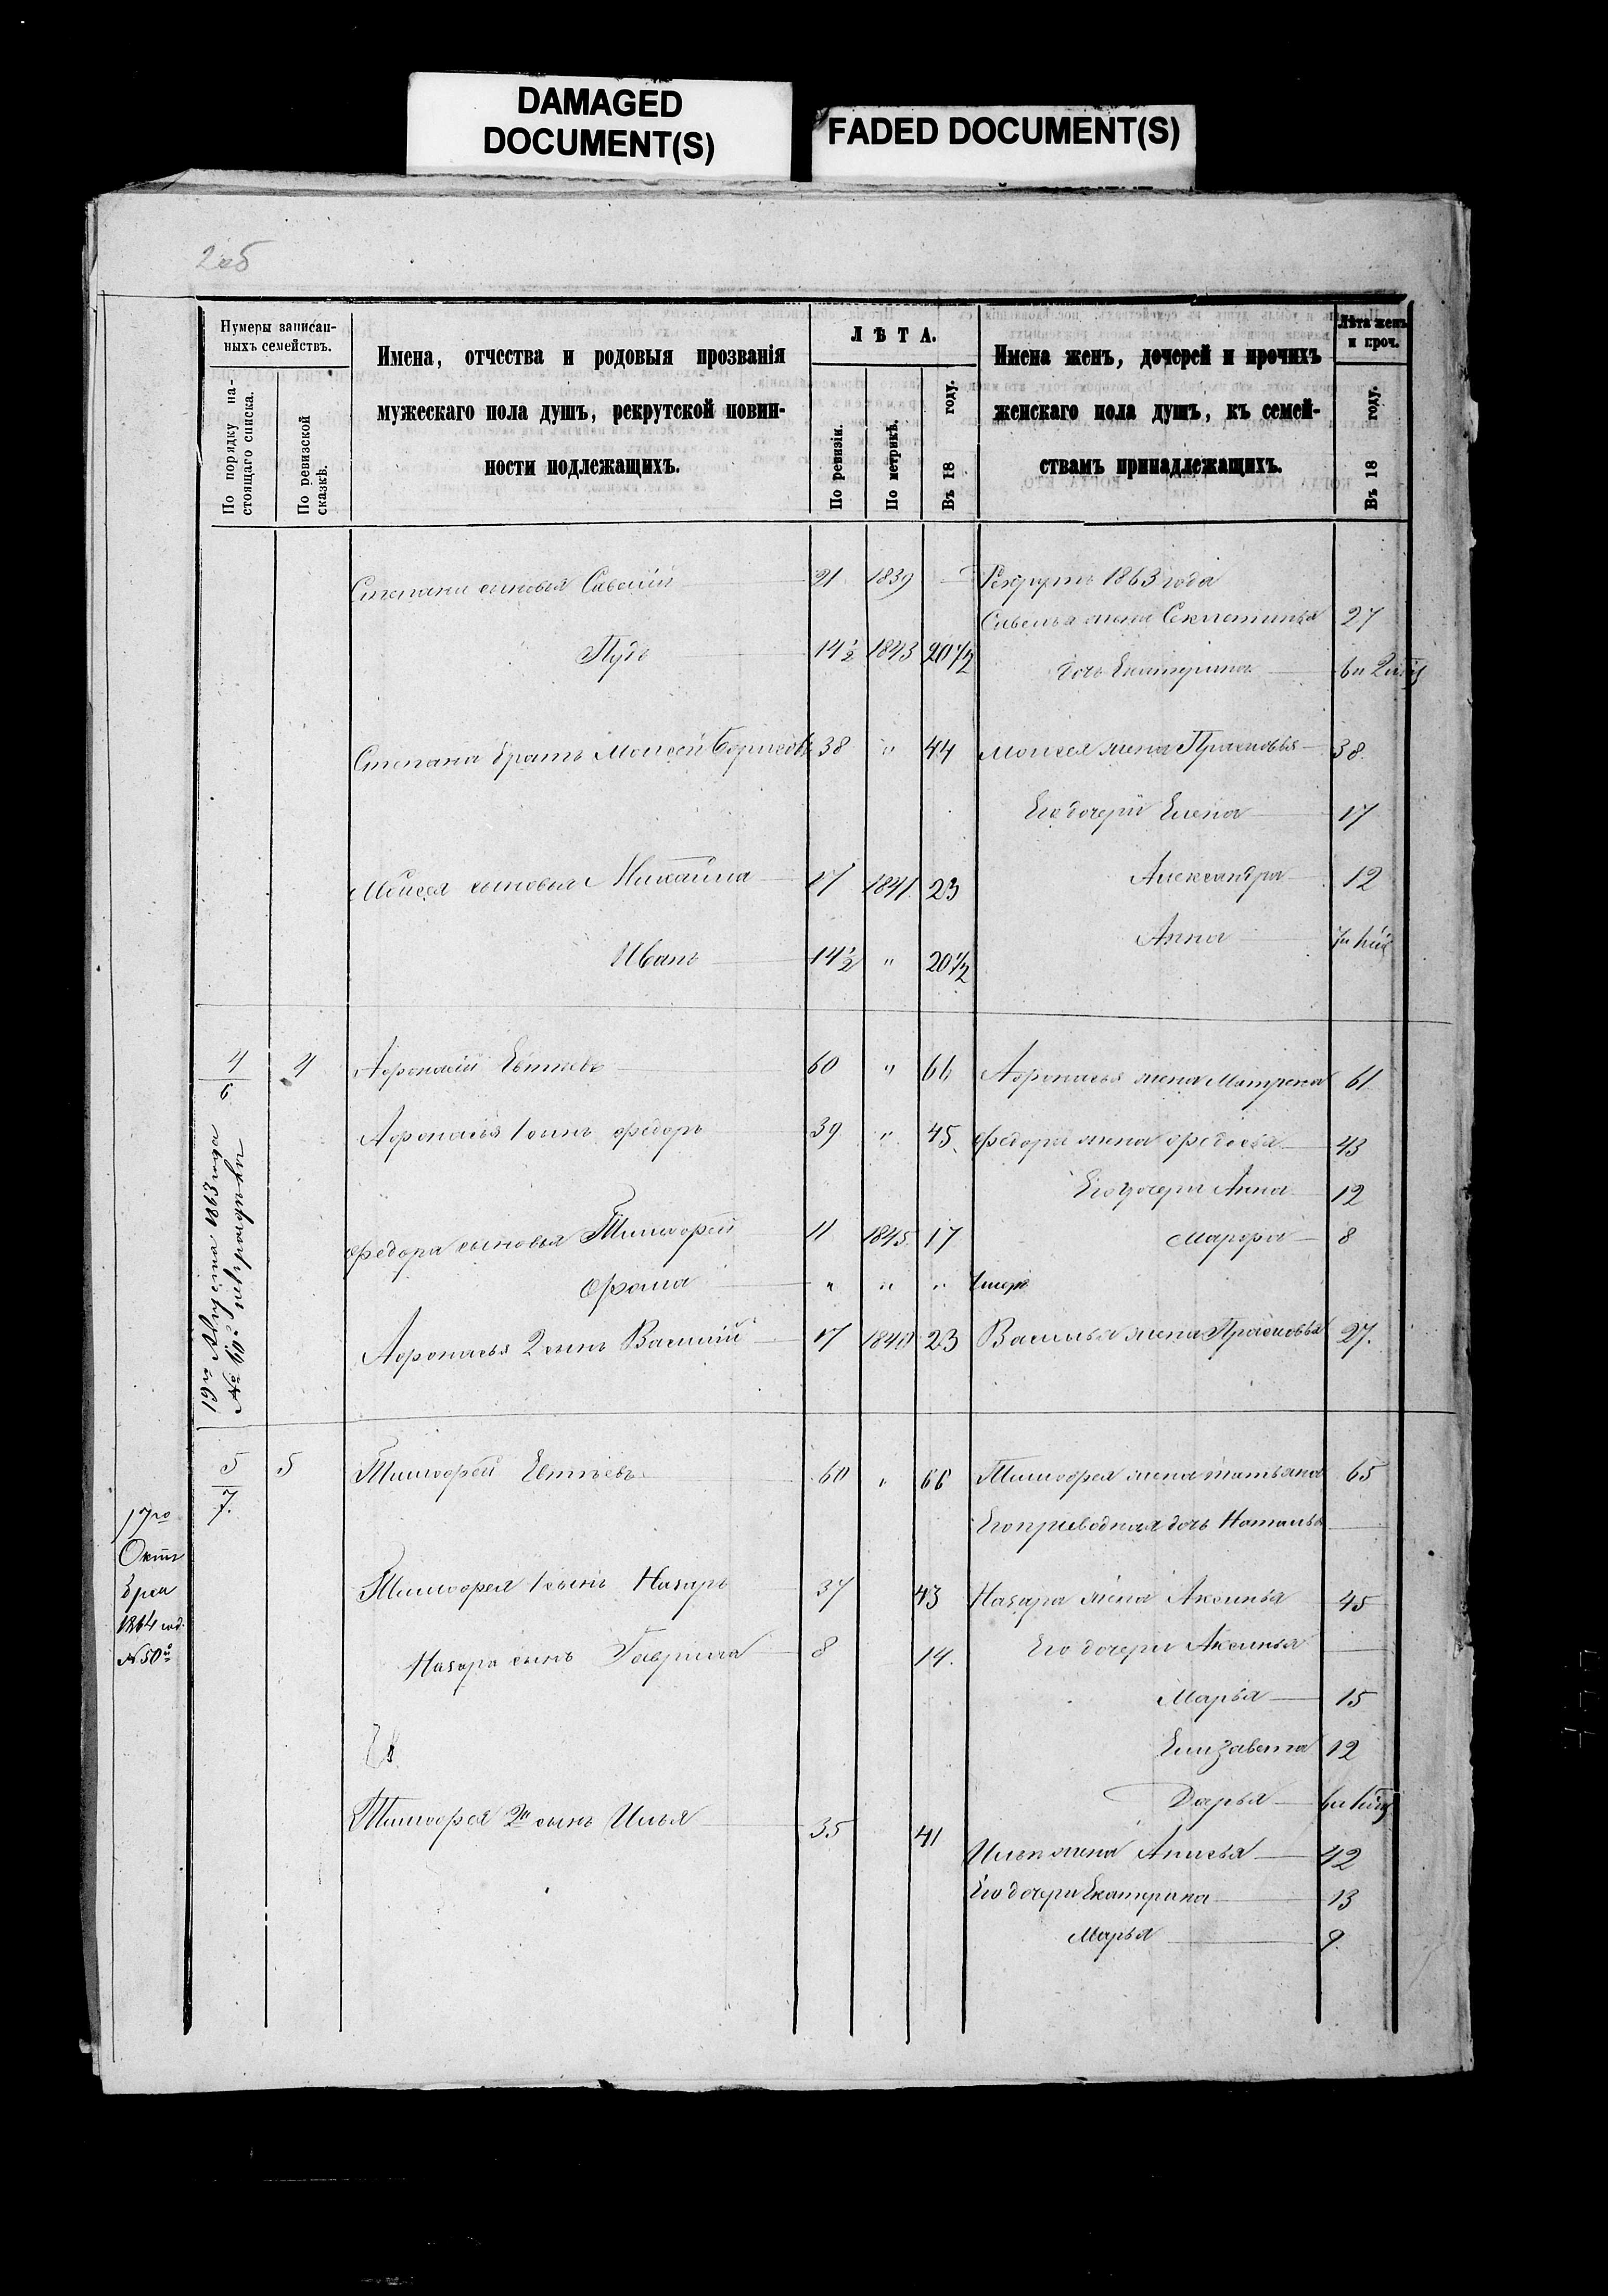 DAMAGED
DOCUMENT(S)
FADED DOCUMENT(S)
2об
Нумеры записан-
ныхъ семействъ.
По порядку на-
стоящаго списка.
По ревизской
сказкѣ.
Имена, отчества и родовыя прозванія
мужескаго пола душъ, рекрутской повин-
ности подлежащихъ.
ЛѢТА.
По ревизіи.
По метрикѣ.
Въ 18 году.
Имена женъ, дочерей и прочихъ
женскаго пола душъ, къ семей-
ствамъ принадлежащихъ.
Лѣта женъ
и проч.
Въ 18 году.
Степана сыновья Савелій 21 1839 — Рекрутъ 1863 года
Савелья жена 27
Пудъ 14½ 1843 20½
дочь Екатерина
Степана братъ Моисей Борисовъ 38 " 44 Моисея жена Прасковья 38.
Его дочери Елена 17
Моисея сыновья Михайла 17 1841 23 Александра 12
Анна
Иванъ 14½ " 20½
4/6 4 Афонасій Евтиевъ 60 " 66 Афонасья жена Матрена 61
Афонасья 1 сынъ Федоръ 39 " 45. Федора жена Федосья 43
Его дочери Анна 12
Федора сыновья Тимофей 11 1845 17 Марфа 8
Фома " " " Умеръ
Афонасья 2 сынъ Василий 17 1840 23 Василья жена Прасковья 27.
1863 года
№ 60
5/7. 5 Тимофей Евтиевъ 60 " 66 Тимофея жена Татьяна 65
Его приводная дочь Наталья
17го
Октя
бря
1864 год.
№ 50й
Тимофея 1 сынъ Назаръ 37 43 Назара жена Аксинья 45
Назара сынъ Гаврила 8 14. Его дочери Аксинья
Марья 15
Елизавета 12
Дарья
Тимофея 2й сынъ Илья 35 41
Ильи жена Анисья 42
Его дочери Екатерина 13
Марья 9.